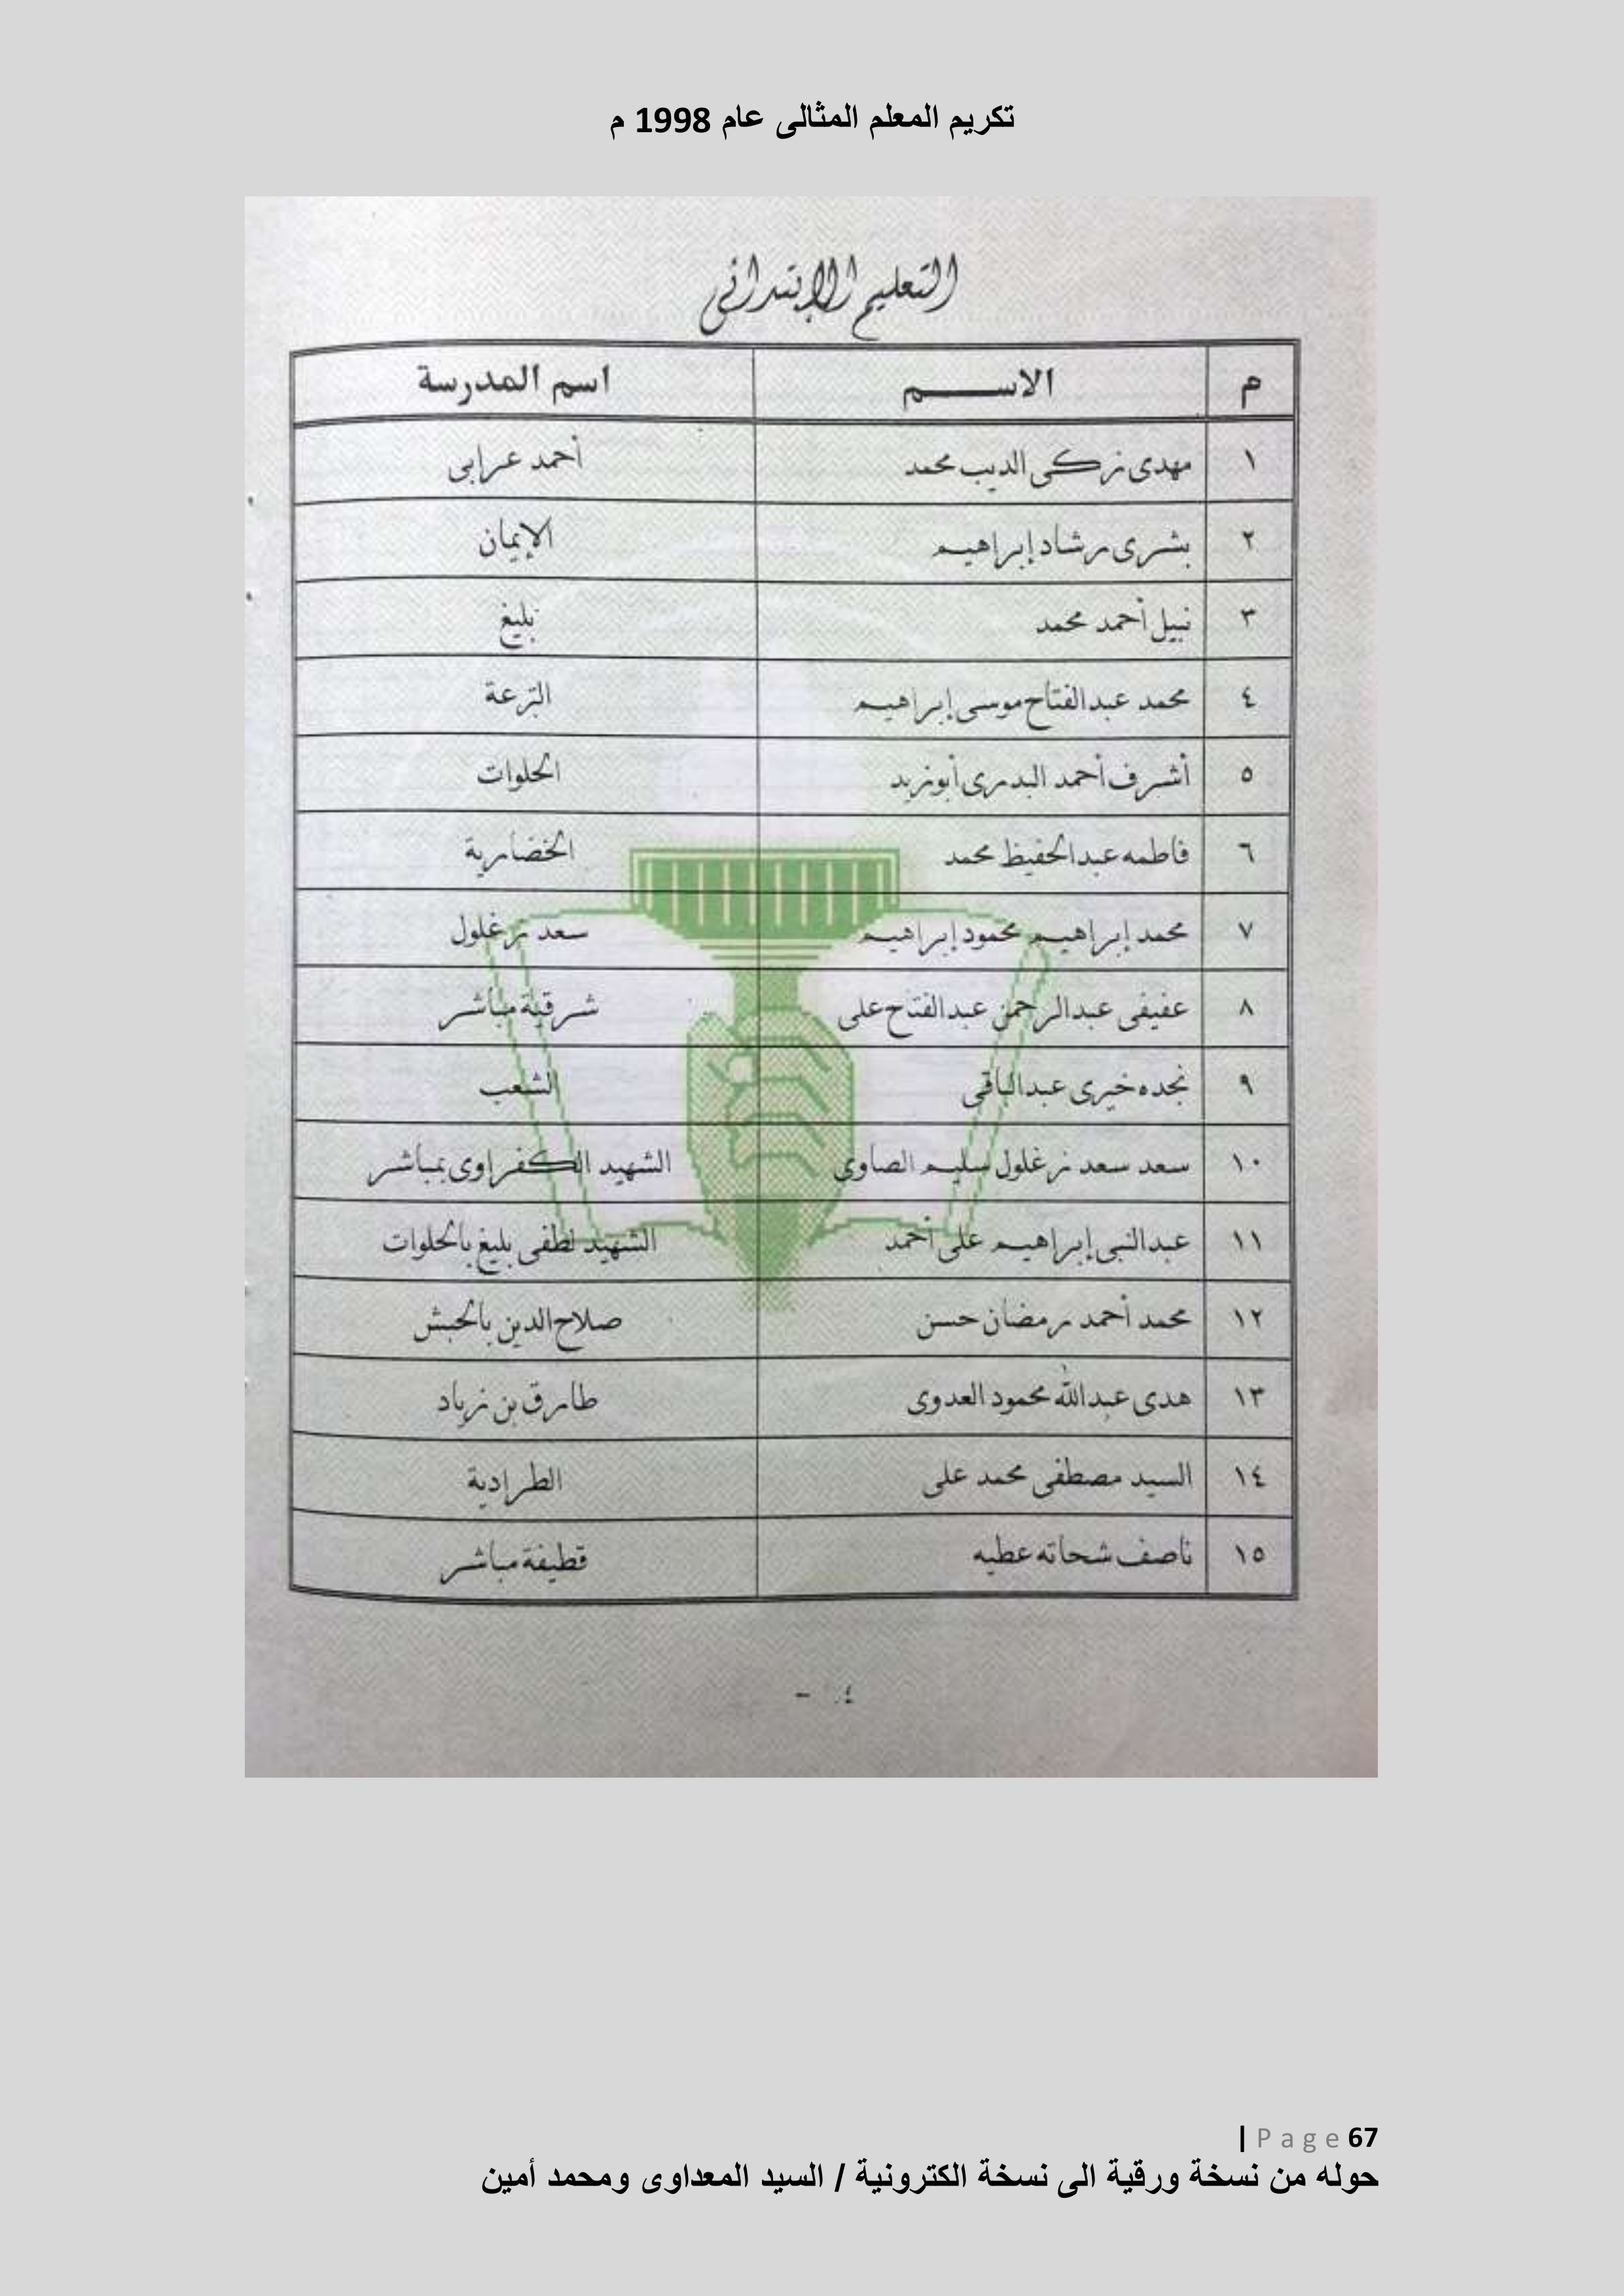 تكريم المعلم المثالى عام 1998 م
التعليم الإبتدائى
م الاســـم اسم المدرسة
١ مهدى زكى الديب محمد أحمد عرابى
٢ بشرى رشاد إبراهيم الإيمان
٣ نبيل أحمد محمد بليغ
٤ محمد عبدالفتاح موسى إبراهيم الترعة
٥ أشرف أحمد البدرى أبوزيد الحلوات
٦ فاطمه عبدالحفيظ محمد الخضارية
٧ محمد إبراهيم محمود إبراهيم سعد زغلول
٨ عفيفى عبدالرحمن عبدالفتاح على شرقية مباشر
٩ نجده خيرى عبدالباقى الشعب
١٠ سعد سعد زغلول سليم الصاوى الشهيد الكفراوى بمباشر
١١ عبدالنبى إبراهيم على أحمد الشهيد لطفى بليغ بالحلوات
١٢ محمد أحمد رمضان حسن صلاح الدين بالحبش
١٣ هدى عبدالله محمود العدوى طارق بن زياد
١٤ السيد مصطفى محمد على الطرادية
١٥ ناصف شحاته عطيه قطيفة مباشر
| Page 67
حوله من نسخة ورقية الى نسخة الكترونية / السيد المعداوى ومحمد أمين